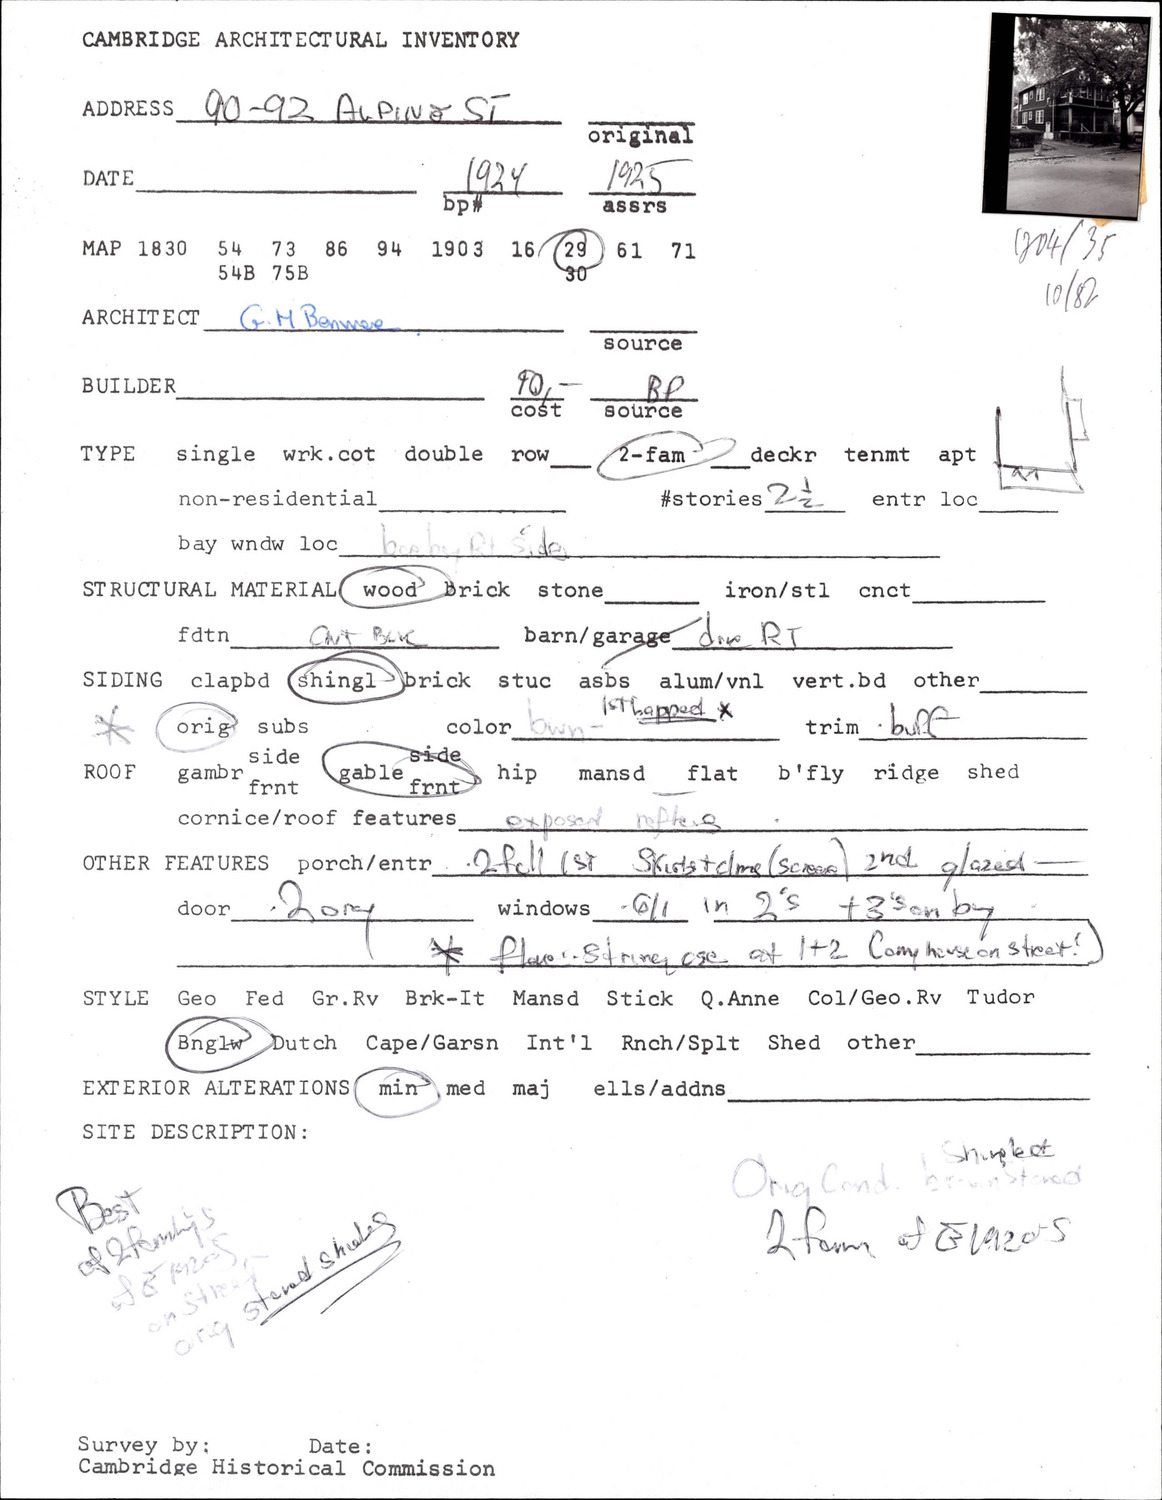 CAMBRIDGE ARCHITECTURAL INVENTORY
ADDRESS 90-92 ALPINE ST
original
DATE 1924 1925
bp# assrs
MAP 1830 54 73 86 94 1903 16 29 61 71
54B 75B 30
1204/35
10/82
ARCHITECT G. M
source
BUILDER 90,— BP
cost source
TYPE single wrk.cot double row 2-fam deckr tenmt apt
non-residential #stories 2½ entr loc
bay wndw loc Rt Side
STRUCTURAL MATERIAL wood brick stone iron/stl cnct
fdtn barn/garage RT
SIDING clapbd shingl brick stuc asbs alum/vnl vert.bd other
1st Lapped *
* orig subs color bwn- trim buff
side side
ROOF gambr gable hip mansd flat b'fly ridge shed
frnt frnt
cornice/roof features exposed rafters
OTHER FEATURES porch/entr 2 full 1st (screen) 2nd glazed
door 2 orig windows 6/1 in 2's + 3's on bay
* at 1+2 Comp house on street!
STYLE Geo Fed Gr.Rv Brk-It Mansd Stick Q.Anne Col/Geo.Rv Tudor
Bnglw Dutch Cape/Garsn Int'l Rnch/Splt Shed other
EXTERIOR ALTERATIONS min med maj ells/addns
SITE DESCRIPTION:
Orig Cond.
2 fam of E 1920s
Best
of 2 familys
of E 1920s
on Street
orig stained shingles
Survey by: Date:
Cambridge Historical Commission